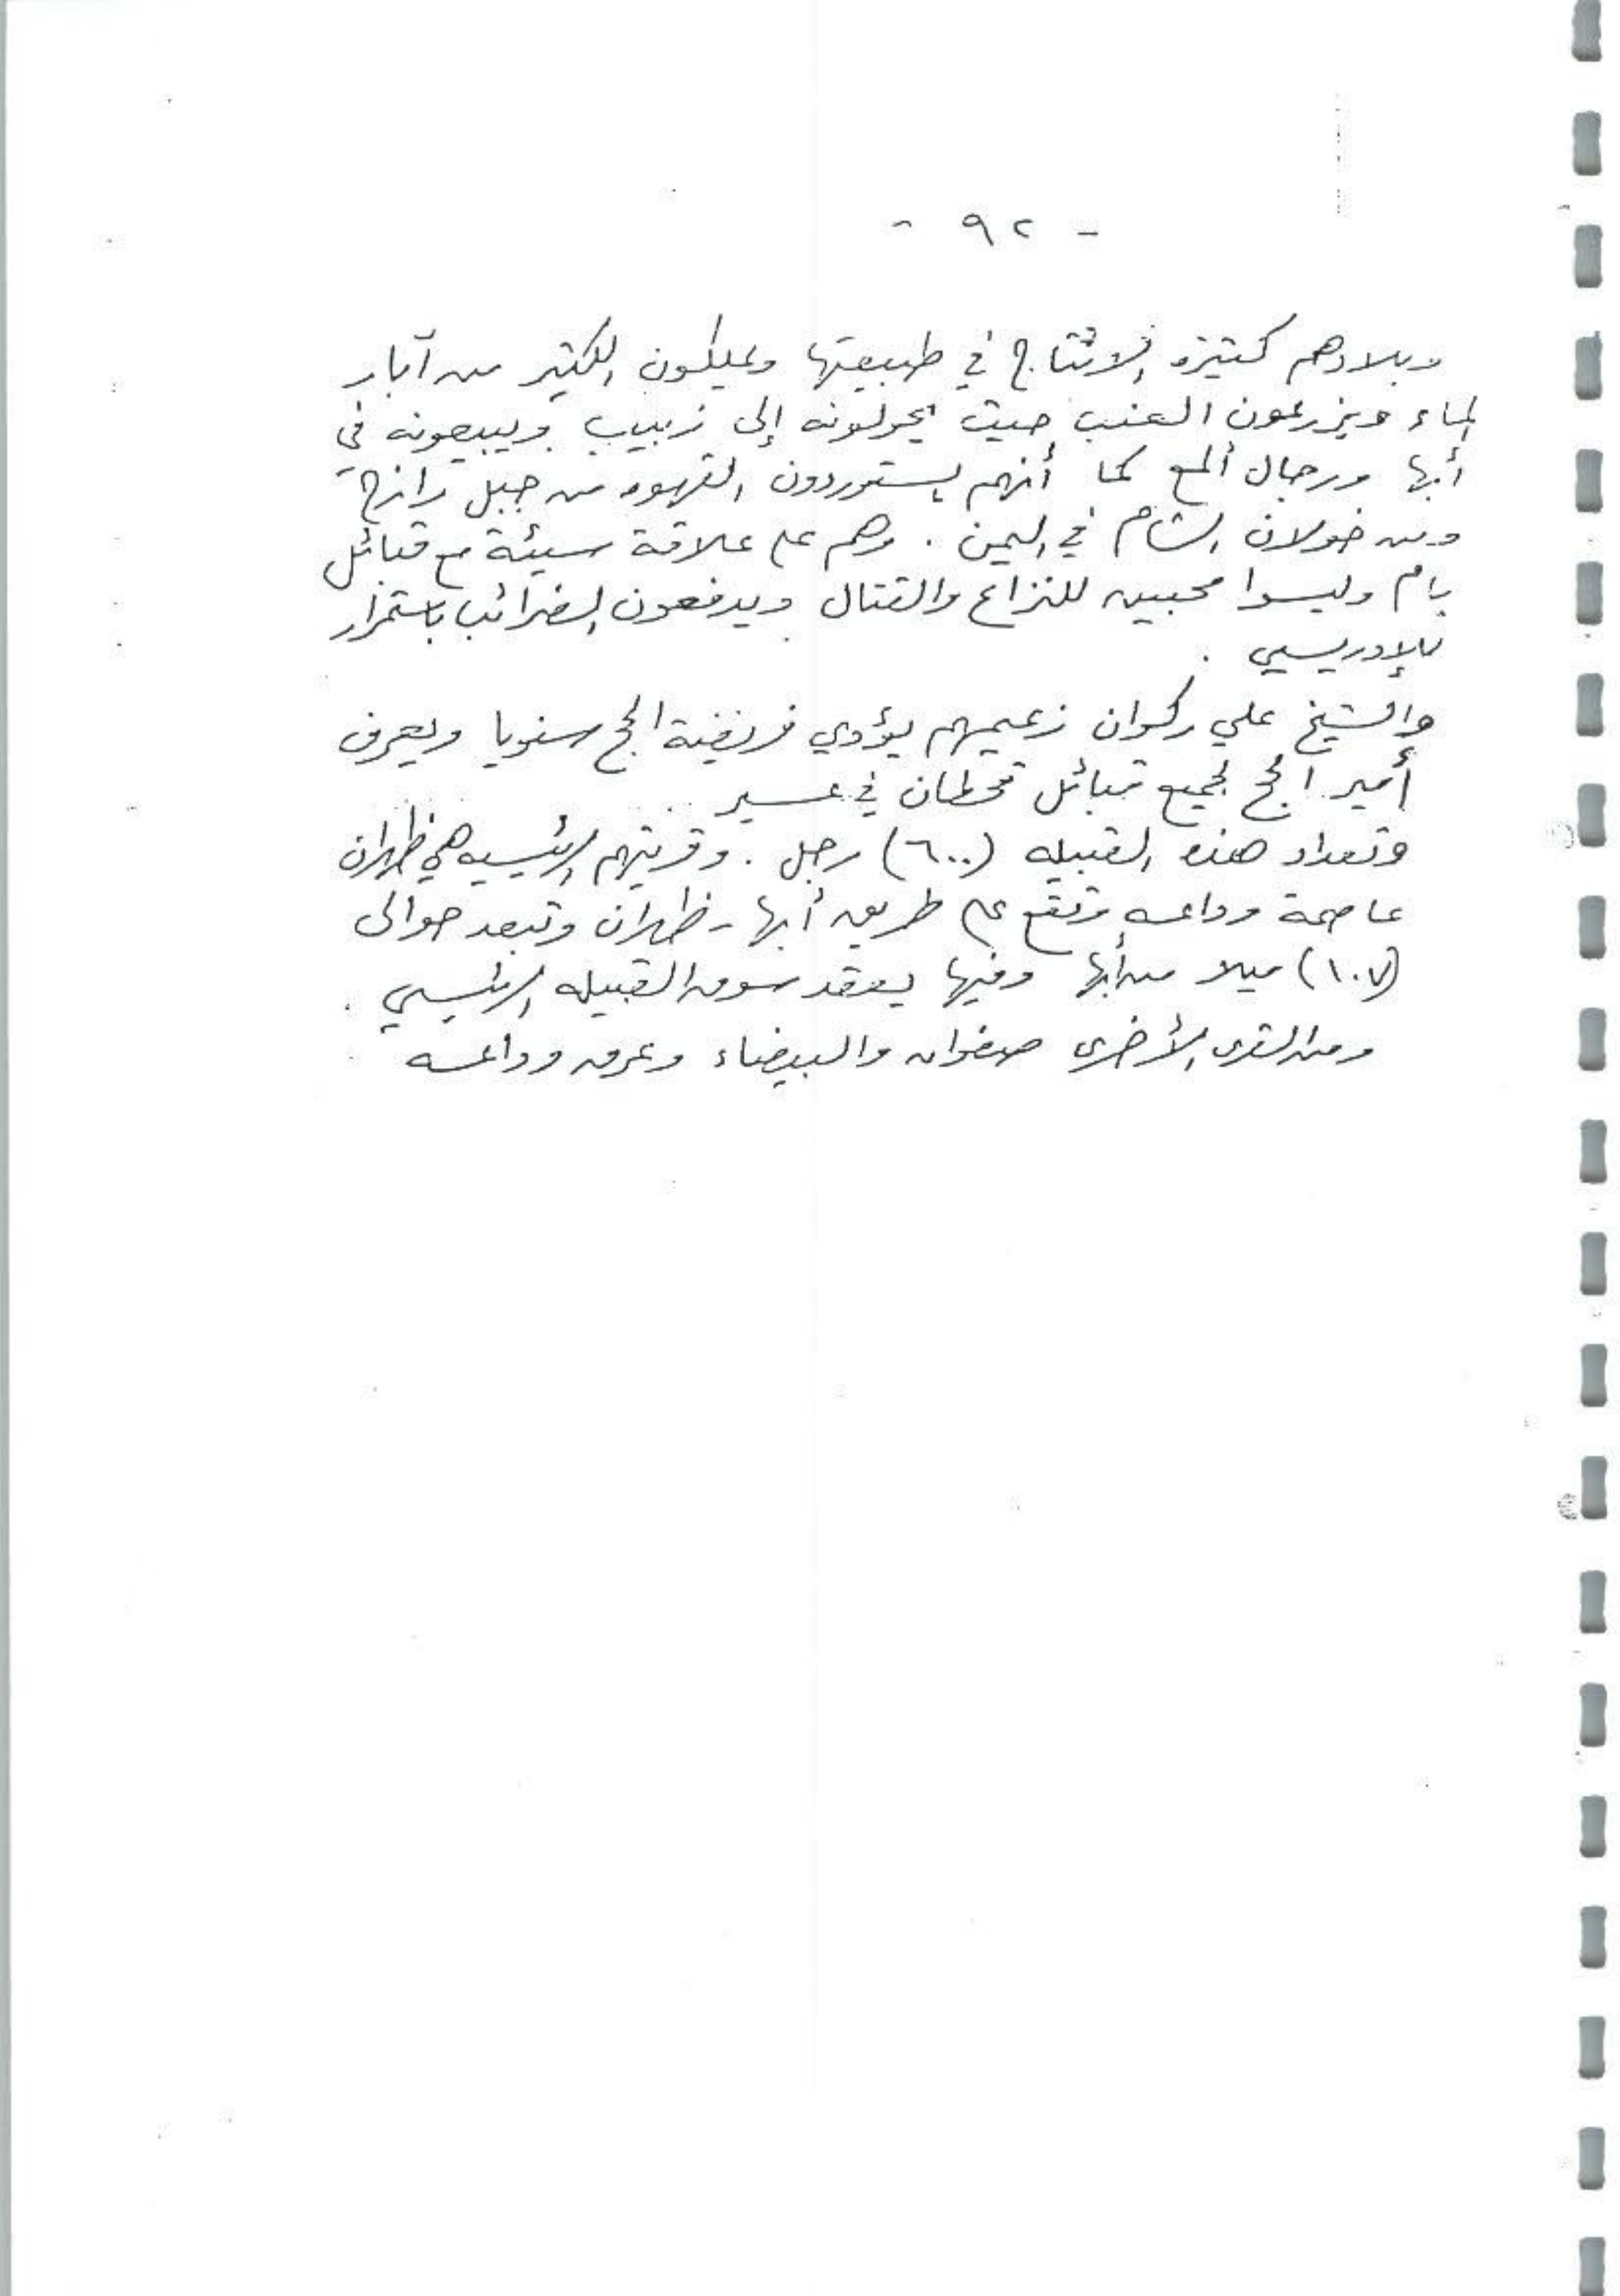 - ٩٢ -
وبلادهم كثيرة الانتاج في طبيعتها ويملكون الكثير من آبار
الماء ويزرعون العنب حيث يحولونه إلى زبيب ويبيعونه في
أبها ورجال ألمع كما أنهم يستوردون القهوه من جبل رازح
ومن خولان الشام في اليمن . وهم على علاقة سيئة مع قبائل
يام وليسوا محبين للنزاع والقتال ويدفعون الضرائب باستمرار
للإدريسي .
والشيخ علي ركوان زعيمهم يؤدي فريضة الحج سنويا ويعرف
أمير الحج لجميع قبائل قحطان في عسير
وتعداد هذه القبيله (٦٠٠) رجل . وقريتهم الرئيسيه هي ظهران
عاصمة وداعه وتقع على طريق أبها - ظهران وتبعد حوالى
(١٠٧) ميلا من أبها وفيها يعقد سوق القبيله الرئيسي .
ومن القرى الأخرى صفوان والبيضاء وعرق وداعه